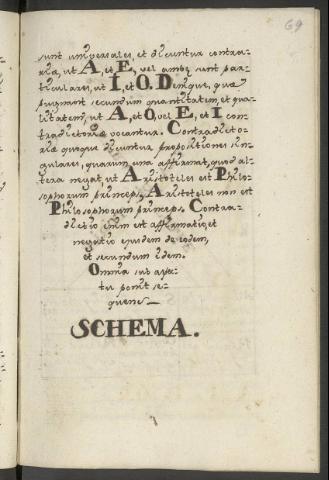 69
sunt universales, et dicuntur contra-
riæ, ut A, et E, vel ambæ sunt par-
ticulares, ut I, et O. Denique, quæ
pugnant secundum quantitatem, et qua-
litatem, ut A, et O, vel E, et I con-
tradictoriæ vocantur. Contradicto-
riæ quoque dicuntur propositiones sin-
gulares, quarum una affirmat, quod al-
tera negat, ut Aristoteles est Philo-
sophorum princeps, Aristoteles non est
Philosophorum princeps. Contra-
dictio enim est affirmatio, et
negatio ejusdem de eodem,
et secundum idem.
Omnia sub aspe-
ctu ponit se-
quens
SCHEMA.